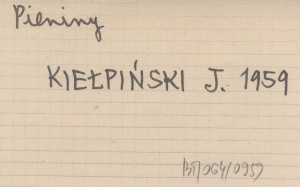 Pieniny
KIEŁPIŃSKI J. 1959
BП/064/0959